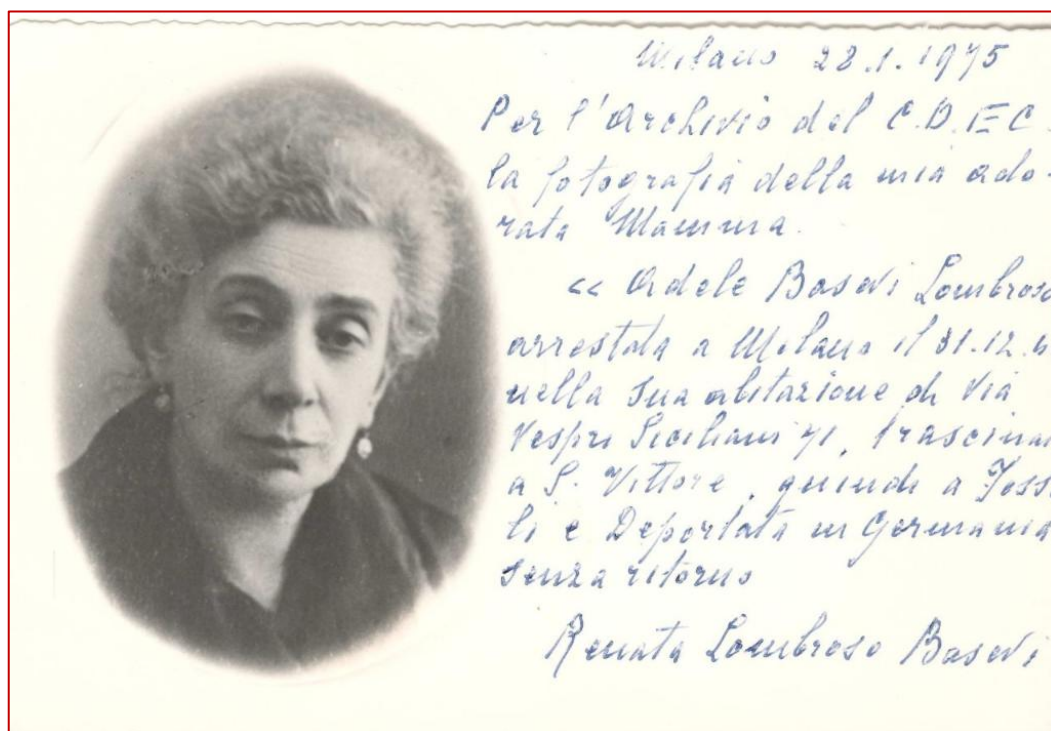 Milano 28.1.1975
Per l'Archivio del C.D.E.C.
la fotografia della mia ado-
rata Mamma.
<< Adele Basevi Lombroso
arrestata a Milano il 31.12.4
nella sua abitazione di Via
Vespri Siciliani 71, trascina
a S. Vittore, quindi a Foss
li e Deportata in Germania
senza ritorno
Renata Lombroso Basevi